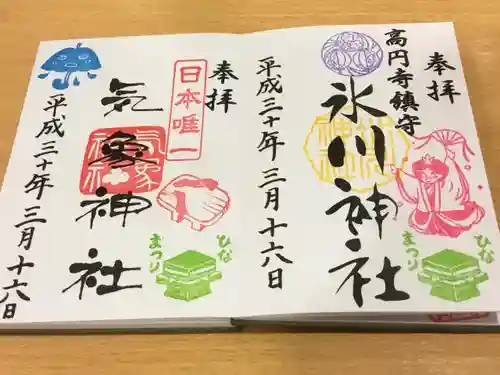 奉拝
高円寺鎮守
氷川神社
平成三十年三月十六日
ひな
まつり
奉拝
日本唯一
気象神社
平成三十年三月十六日
ひな
まつり